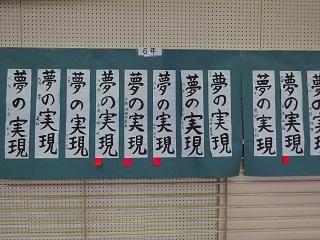 6年
夢の実現
夢の実現
夢の実現
夢の実現
夢の実現
夢の実現
夢の実現
夢の実現
夢の実現
夢の実現
夢の実現